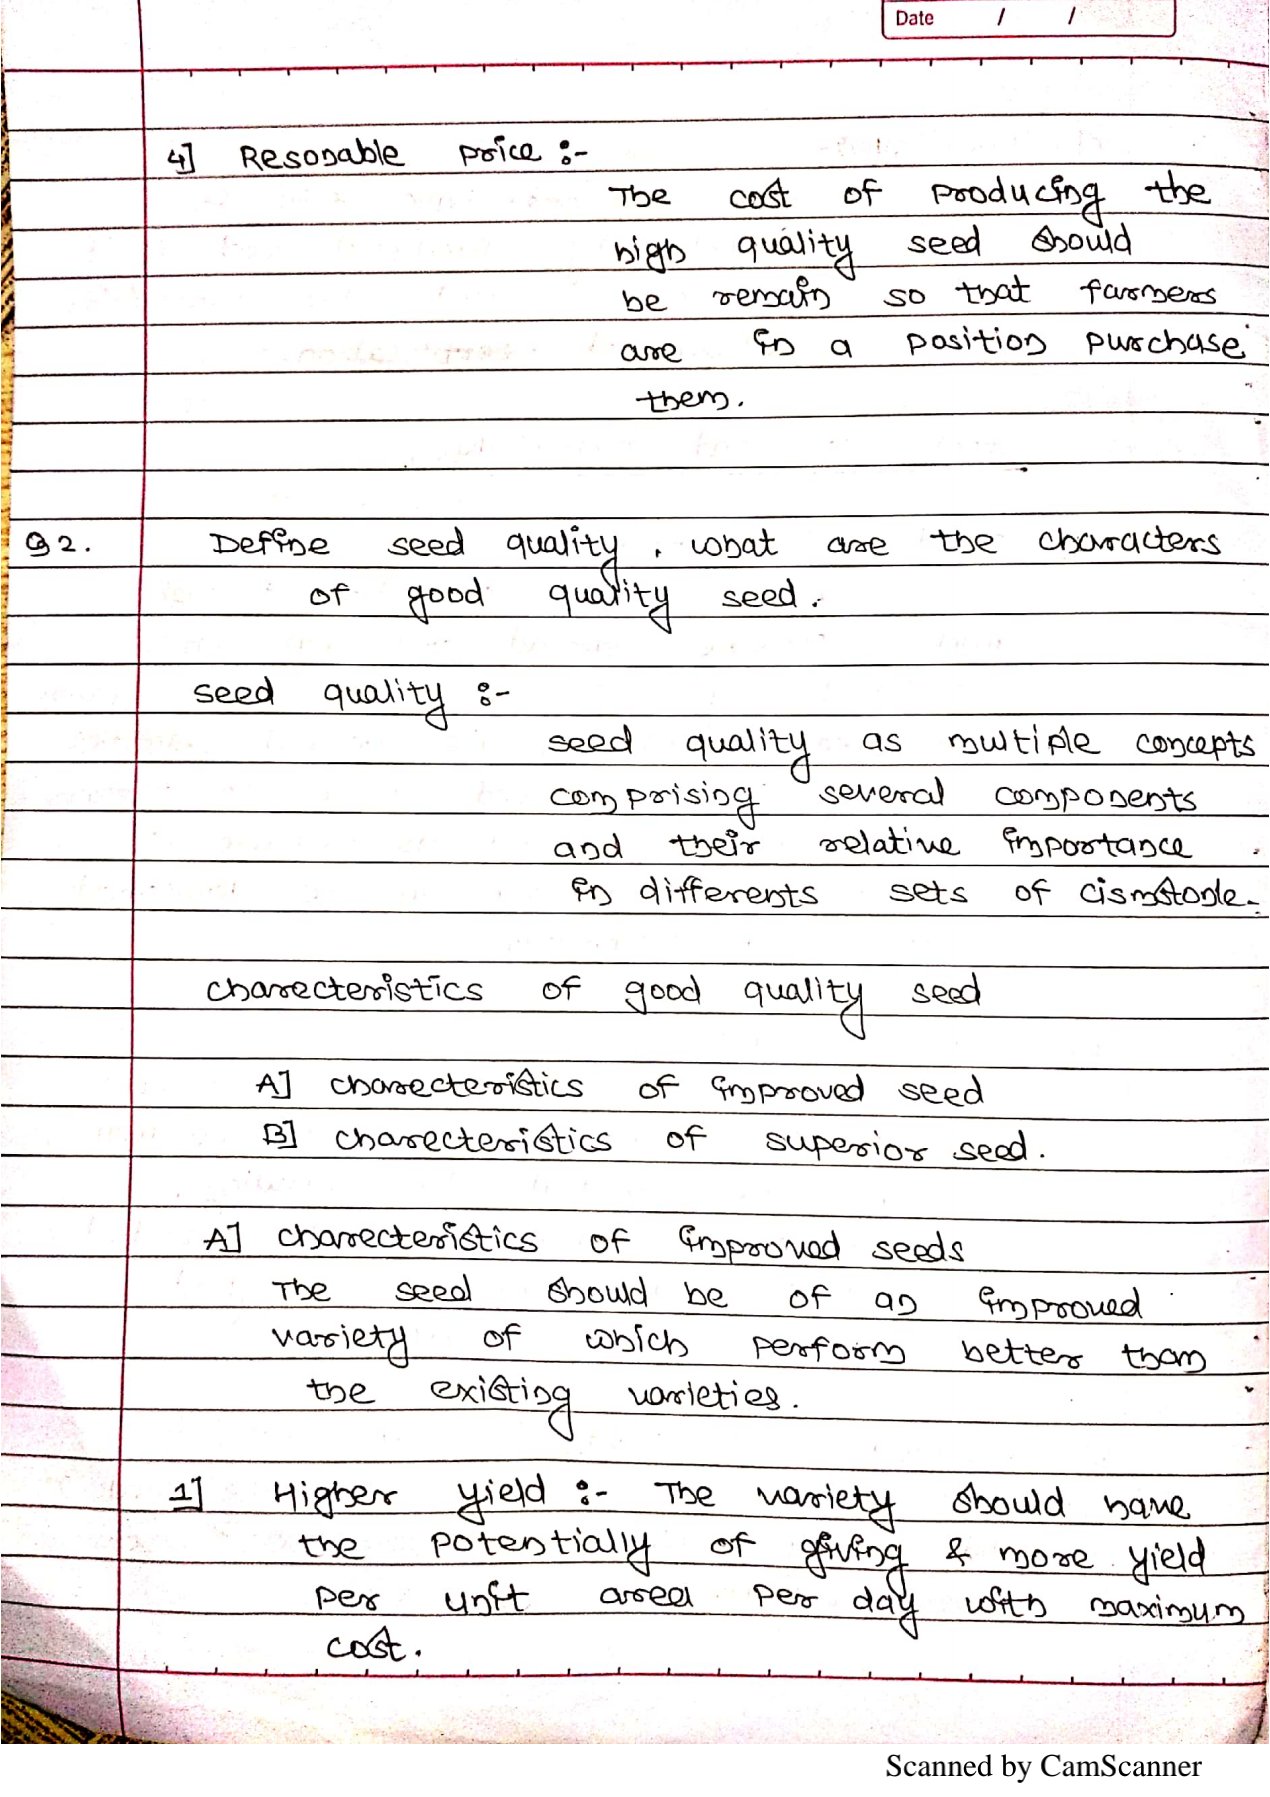 Date / /
4] Resonable price :-
The cost of producing the
high quality seed should
be remain so that farmers
are in a position purchase
them.
Q2. Define seed quality, what are the characters
of good quality seed.
seed quality :-
seed quality as multiple concepts
comprising several components
and their relative importance
in differents sets of
charecteristics of good quality seed
A] charecteristics of improved seed
B] charecteristics of superior seed.
A] charecteristics of improved seeds
The seed should be of an improved
variety of which perform better than
the existing varieties.
1] Higher yield :- The variety should have
the potentially of giving & more yield
per unit area per day with maximum
cost.
Scanned by CamScanner